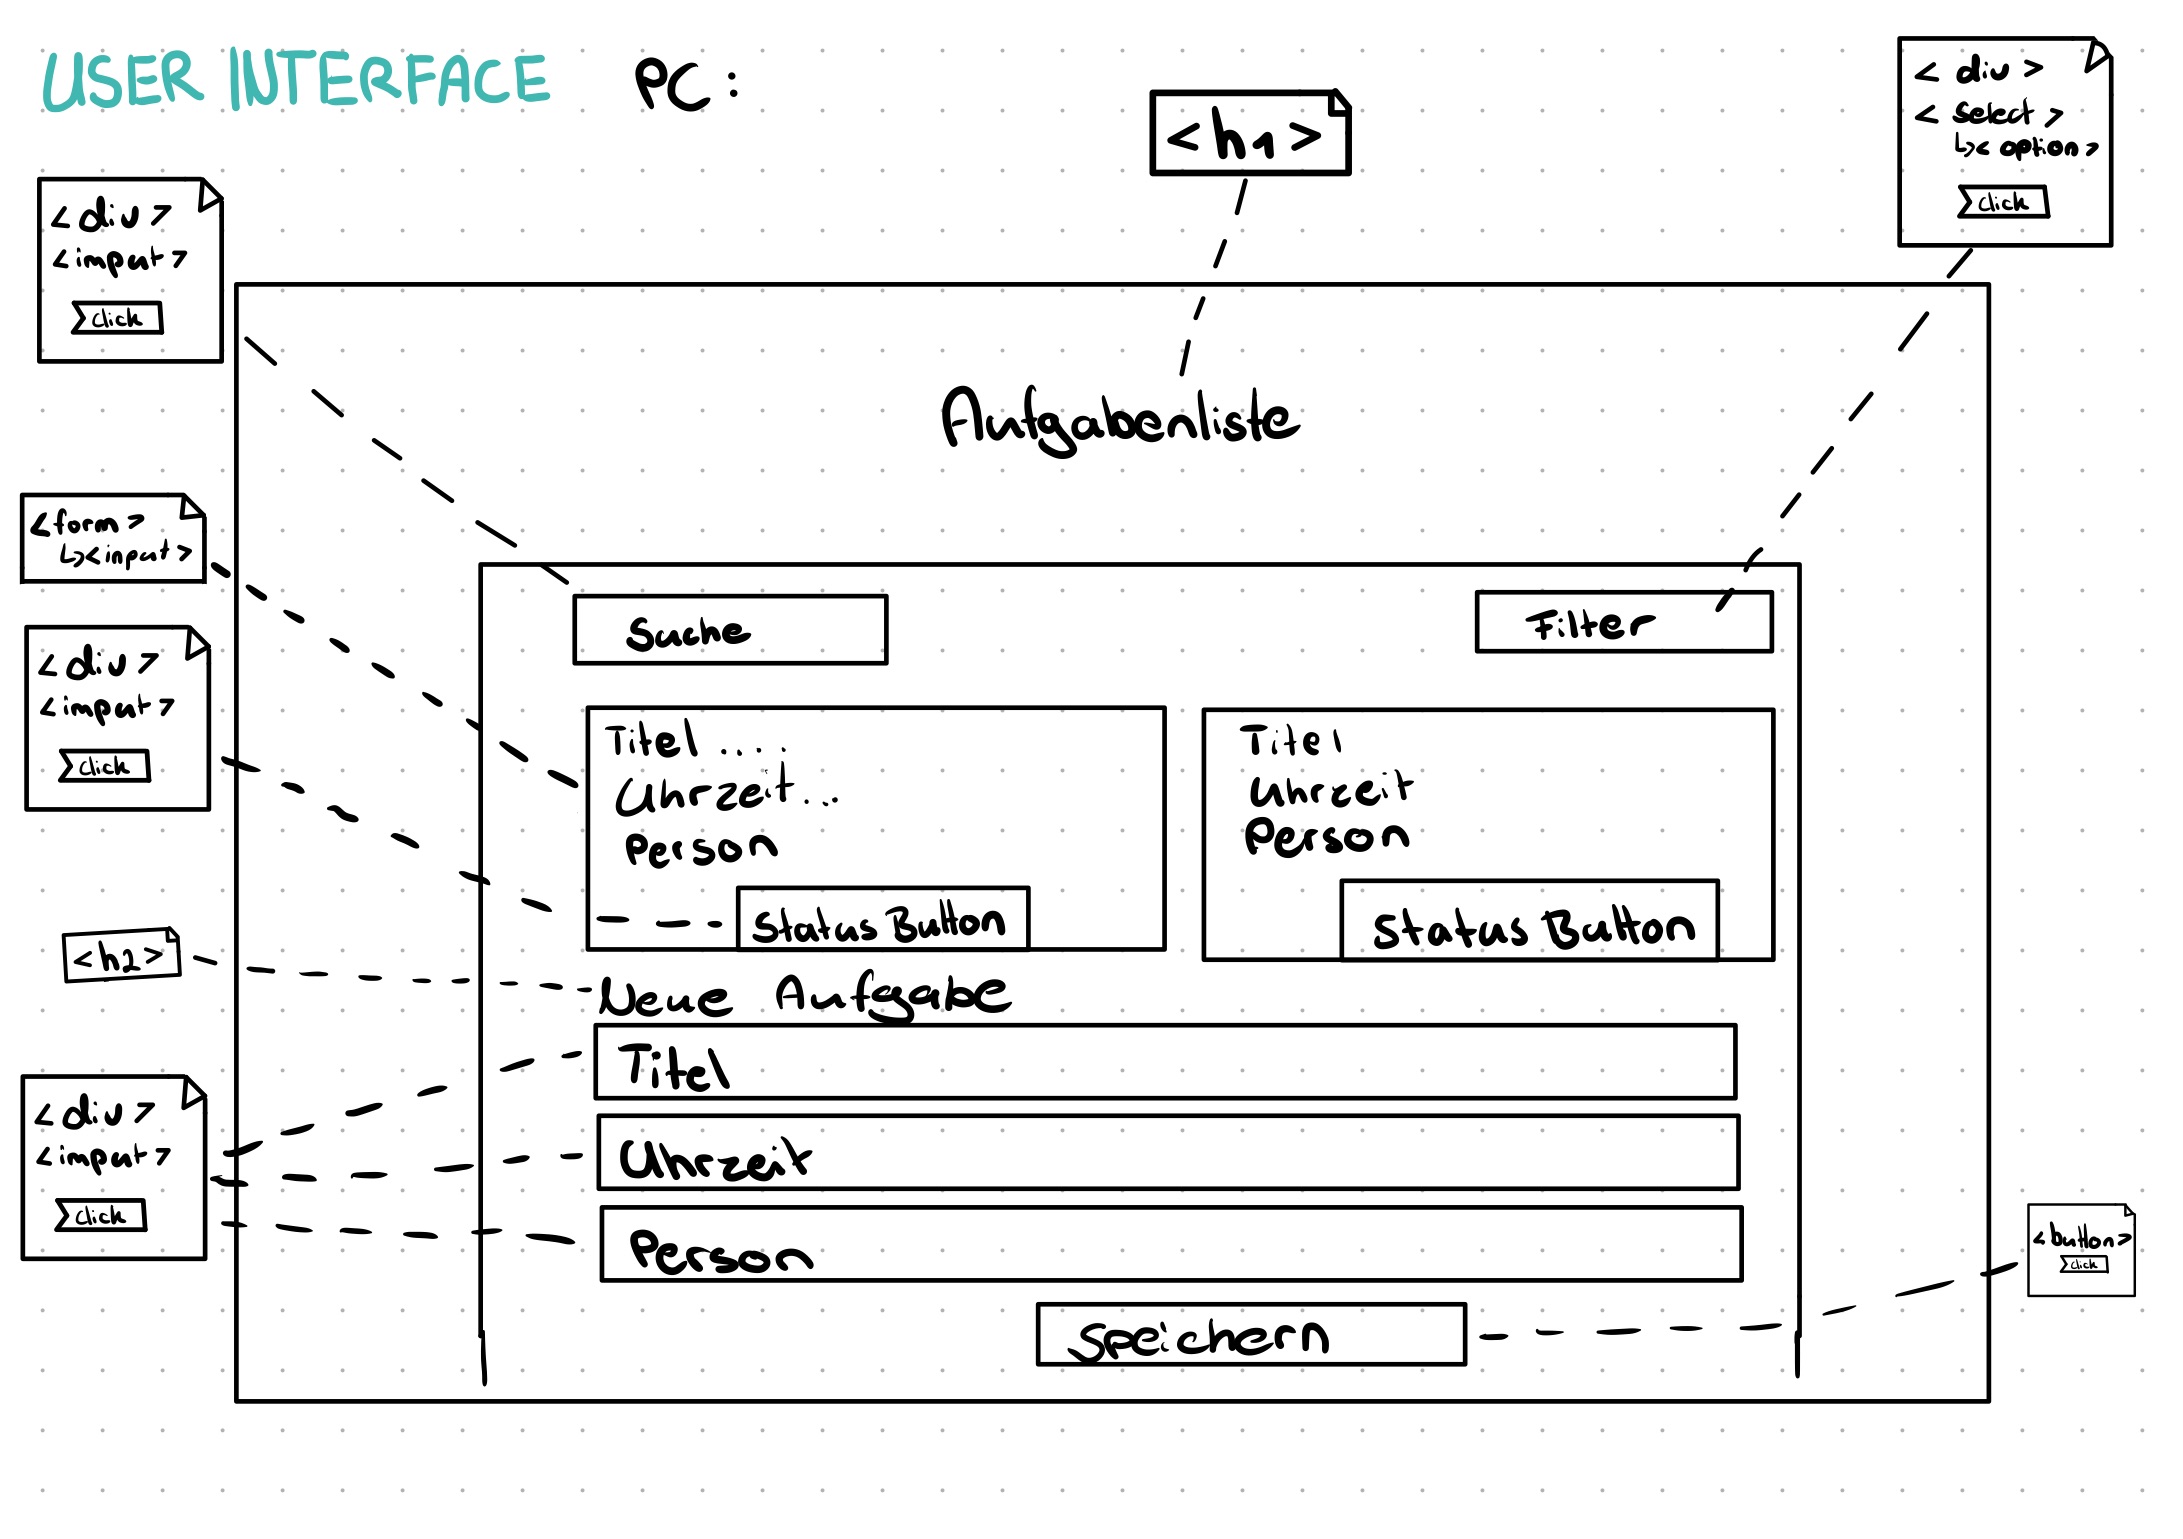 USER INTERFACE PC:
<h1>
<div>
<select>
↳<option>
click
<div>
<input>
click
Aufgabenliste
<form>
↳<input>
Suche
Filter
<div>
<input>
click
Titel ....
Uhrzeit...
Person
Status Button
Titel
Uhrzeit
Person
Status Button
<h2>
Neue Aufgabe
<div>
<input>
click
Titel
Uhrzeit
Person
<button>
click
Speichern